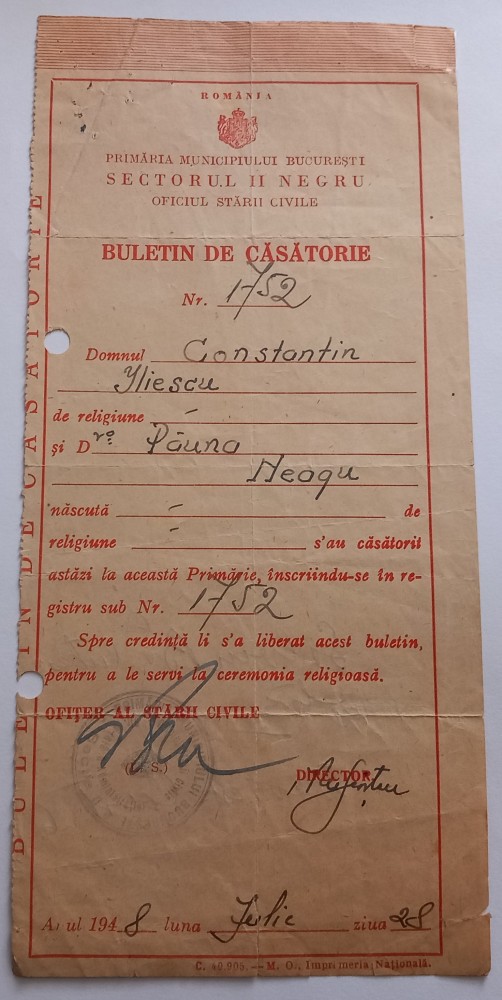 ROMÂNIA
PRIMĂRIA MUNICIPIULUI BUCUREȘTI
SECTORUL II NEGRU
OFICIUL STĂRII CIVILE
BULETIN DE CĂSĂTORIE
Nr. 1752
Domnul Constantin
Iliescu
de religiune -
și D ra Păuna
Neagu
născută - de
religiune - s'au căsătorit
astăzi la această Primărie, înscriindu-se în re-
gistru sub Nr. 1752
Spre credință li s'a liberat acest buletin,
pentru a le servi la ceremonia religioasă.
OFIȚER AL STĂRII CIVILE
(L. S.)
DIRECTOR,
Anul 1948 luna Iulie ziua 28
C. 40.905.—M. O., Imprimeria Națională.
BULETIN DE CĂSĂTORIE